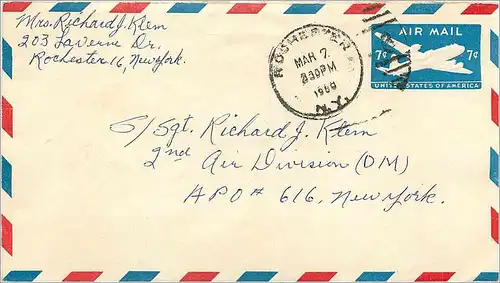 Mrs. Richard J. Klem
203 Laverne Dr.
Rochester 16, New York.
ROCHESTER
MAR 7
830PM
1960
N.Y.
AIR MAIL
7¢ 7¢
UNITED STATES OF AMERICA
S/Sgt. Richard J. Klem
2nd Air Division (DM)
APO # 616, New York.